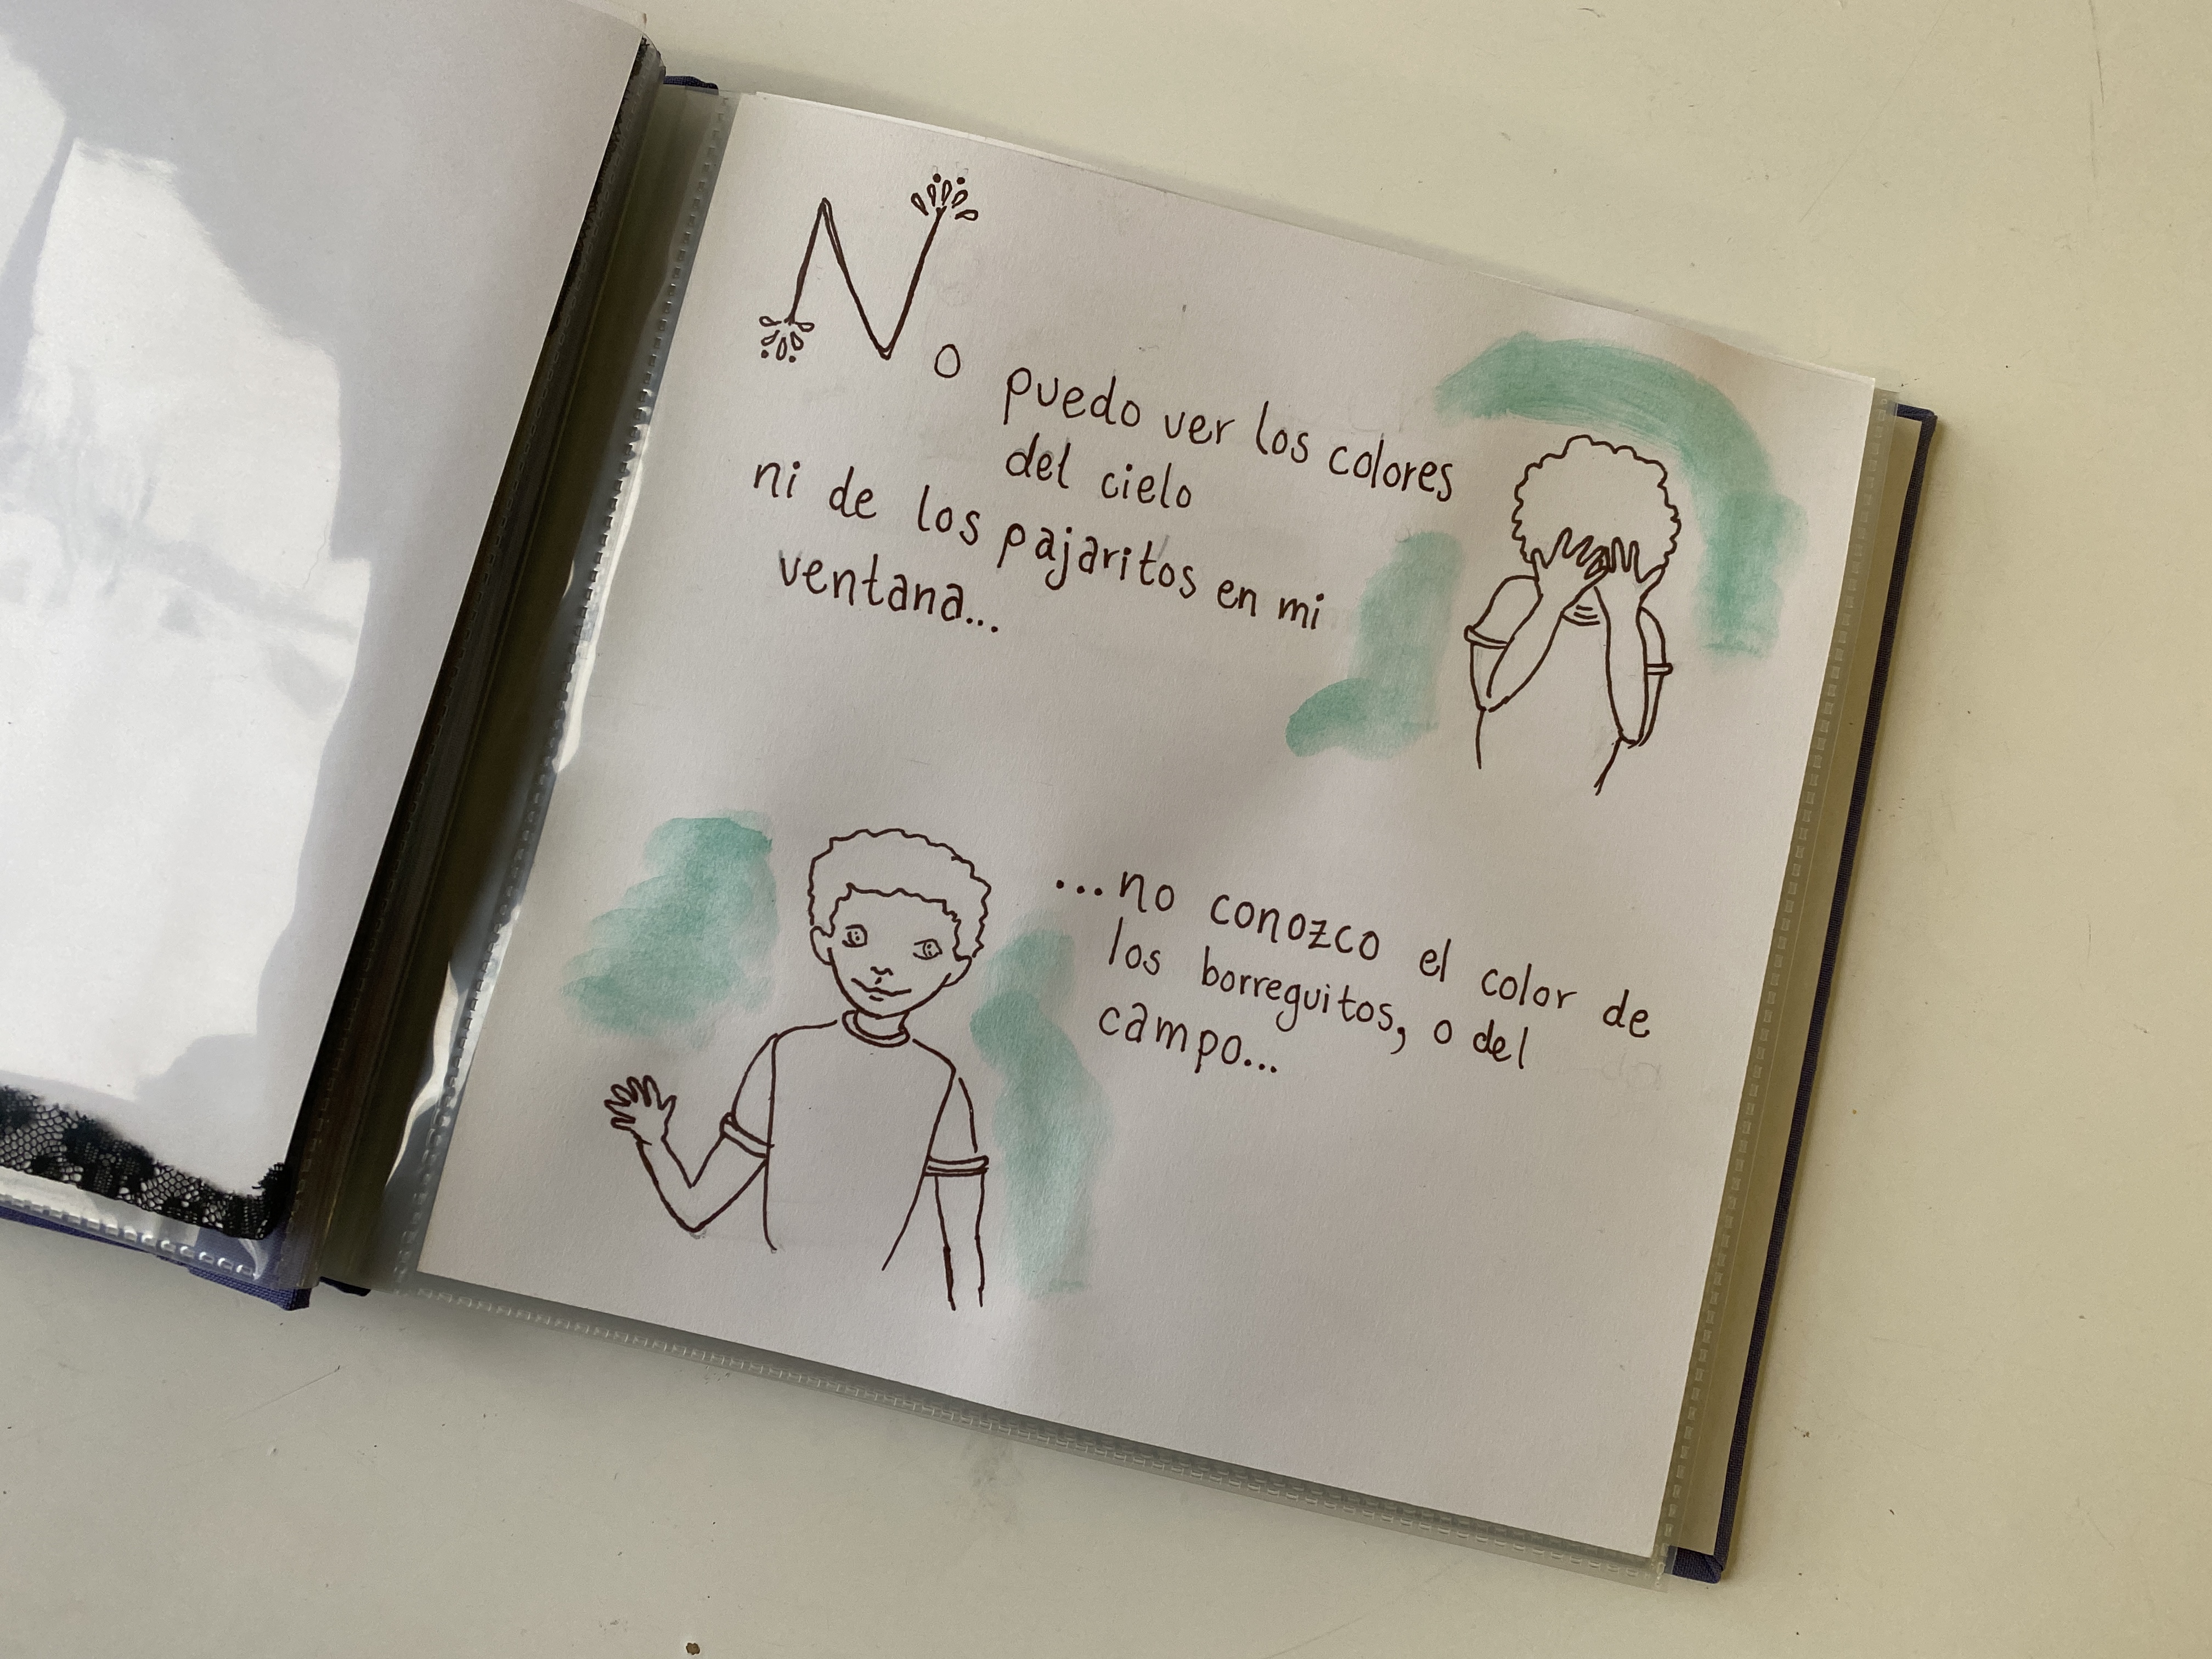 No puedo ver los colores
del cielo
ni de los pajaritos en mi
ventana...
...no conozco el color de
los borreguitos, o del
campo...